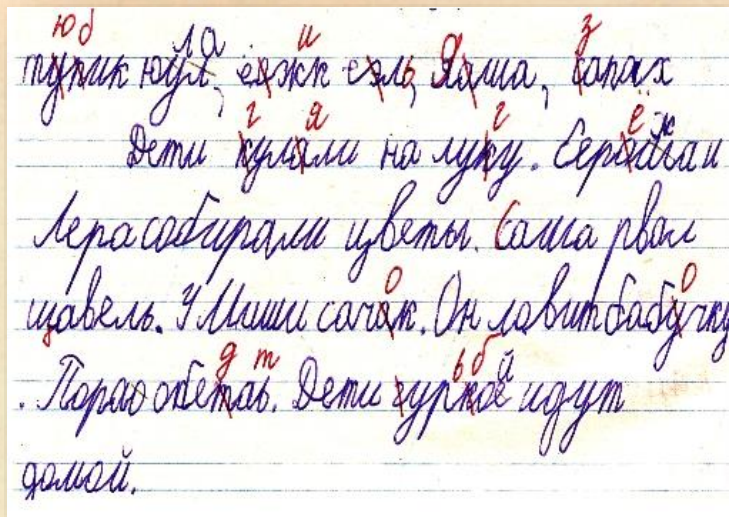 юб ла и я з
тупик юул, ёяжк еэль, Яаша, сапах
г я г ё ж
Дети кулали на луку. Серойжаи
Лерасобирали цветы. Саша рвал
щавель. У Миши сачак. Он ловит бабучку
о о
. Порао обетаь. Дети гуркой идут
д т ь б й
домой.